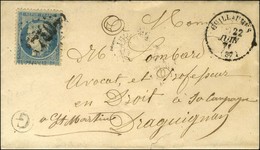 GUILLAUMES
22
JUIN
Monsieur
Mr Lombard
Avocat, et Professeur
en Droit à sa campagne
à St Martin
Draguignan